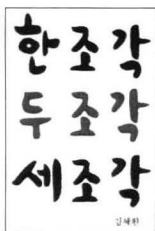 한조각
두조각
세조각
김혜원